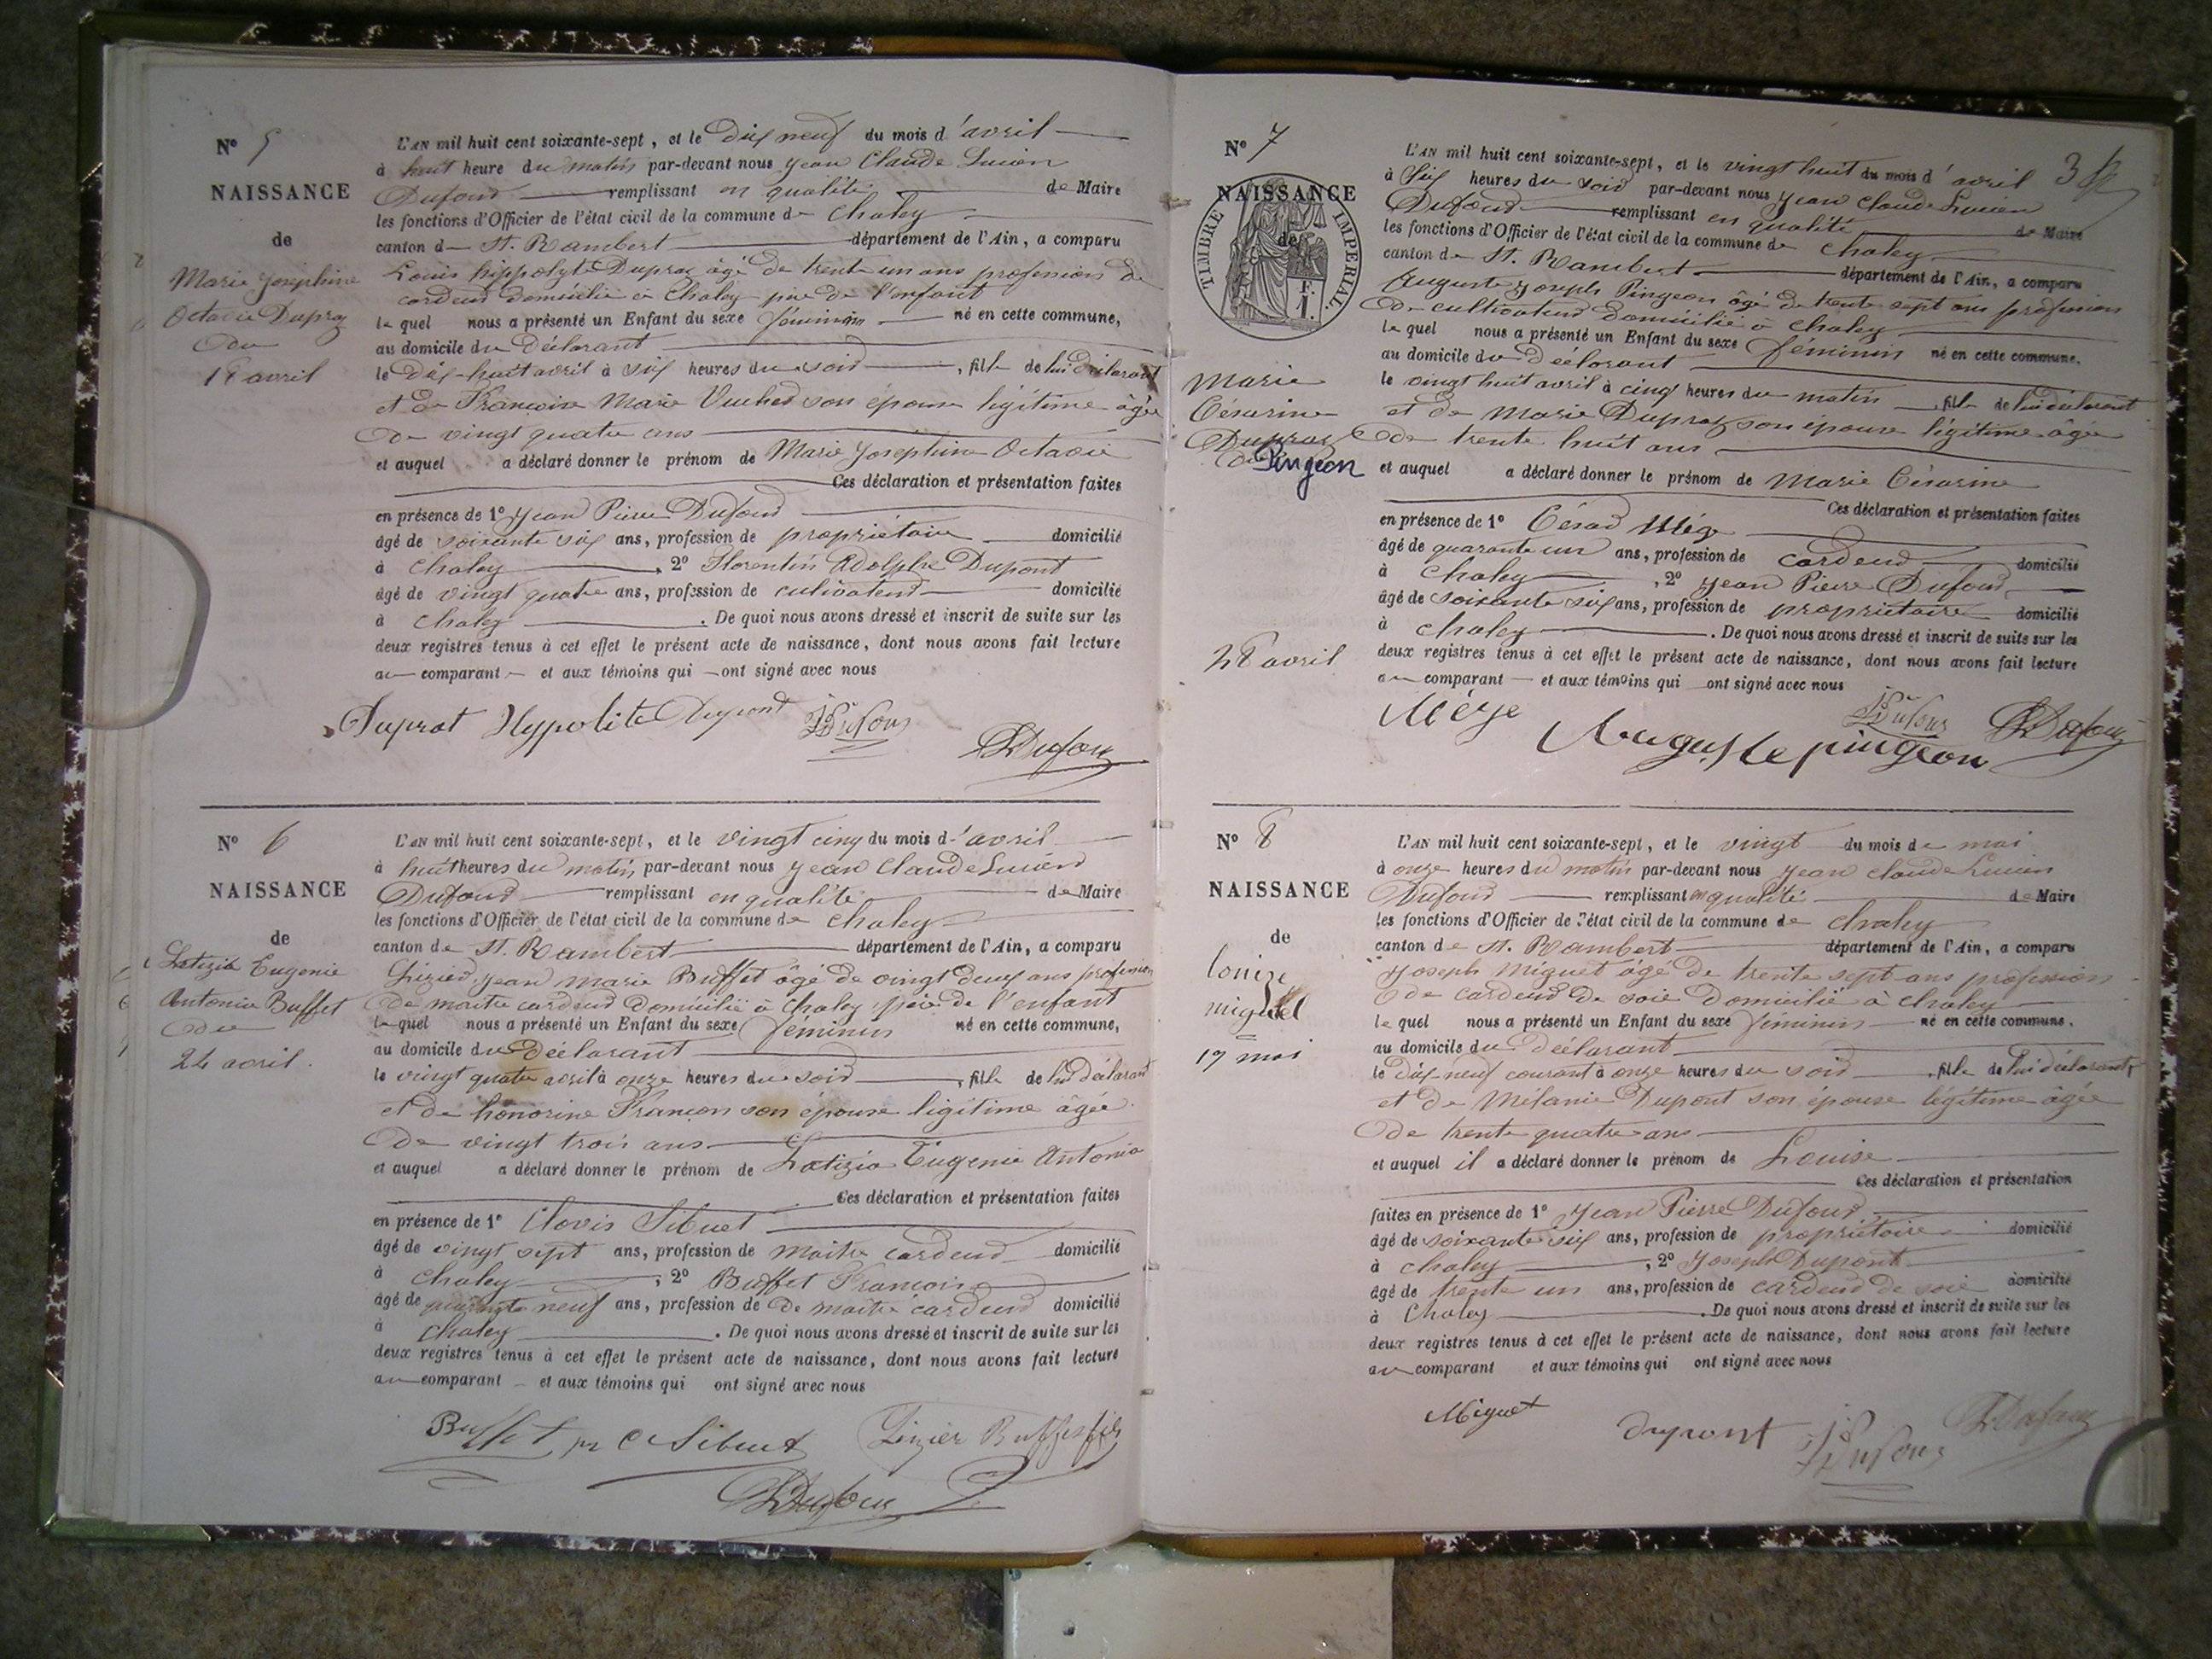 N° 5
NAISSANCE
de
Marie Joséphine
Octavie Dupraz
du
18 avril
L'AN mil huit cent soixante-sept, et le Dix neuf du mois d'avril
à huit heure du matin par-devant nous Jean Claude Lucien
Dufour remplissant en qualité de Maire
les fonctions d'Officier de l'état civil de la commune de Chaley
canton d St. Rambert département de l'Ain, a comparu
Louis hippolyte Dupraz âgé de trente un ans profession de
cardeur domicilié à Chaley père de l'enfant
lequel nous a présenté un Enfant du sexe féminin né en cette commune,
au domicile du Déclarant
le Dix-huit avril à six heures du soir, fille de lui déclarant
et de Françoise Marie son épouse légitime âgée
de vingt quatre ans
et auquel a déclaré donner le prénom de Marie Josephine Octavie
Ces déclaration et présentation faites
en présence de 1° Jean Pierre Dufour
âgé de soixante six ans, profession de propriétaire domicilié
à Chaley, 2° Florentin Adolphe Dupont
âgé de vingt quatre ans, profession de cultivateur domicilié
à Chaley. De quoi nous avons dressé et inscrit de suite sur les
deux registres tenus à cet effet le présent acte de naissance, dont nous avons fait lecture
au comparant et aux témoins qui ont signé avec nous
Duprat Hypolite Dupont JPDufour
LDufour
N° 6
NAISSANCE
de
Latizia Eugenie
Antonia Buffet
du
24 avril.
L'AN mil huit cent soixante-sept, et le vingt cinq du mois d'avril
à huit heures du matin par-devant nous Jean Claude Lucien
Dufour remplissant en qualité de Maire
les fonctions d'Officier de l'état civil de la commune de Chaley
canton de St. Rambert département de l'Ain, a comparu
Jean Marie Buffet âgé de vingt deux ans profession
de maitre cardeur domicilié à Chaley père de l'enfant
lequel nous a présenté un Enfant du sexe féminin né en cette commune,
au domicile du Déclarant
le vingt quatre avril à onze heures du soir, fille de lui déclarant
et de honorine Françon son épouse légitime âgée
de vingt trois ans
et auquel a déclaré donner le prénom de Latizia Eugenie Antonia
Ces déclaration et présentation faites
en présence de 1° Clovis Sibuet
âgé de vingt sept ans, profession de maitre cardeur domicilié
à Chaley, 2° Buffet François
âgé de neuf ans, profession de de maitre cardeur domicilié
à Chaley. De quoi nous avons dressé et inscrit de suite sur les
deux registres tenus à cet effet le présent acte de naissance, dont nous avons fait lecture
au comparant et aux témoins qui ont signé avec nous
Buffet pr C Sibuet Lizier Buffet fils
LDufour
N° 7
NAISSANCE
de
TIMBRE IMPERIAL.
F.
1.
Marie
Césarine
Dupraz
du Pingeon
28 avril
3
L'AN mil huit cent soixante-sept, et le vingt huit du mois d'avril
à six heures du soir par-devant nous Jean Claude Lucien
Dufour remplissant en qualité de Maire
les fonctions d'Officier de l'état civil de la commune de Chaley
canton de St. Rambert département de l'Ain, a comparu
Auguste Joseph Pingeon âgé de trente sept ans profession
de cultivateur domicilié à Chaley
lequel nous a présenté un Enfant du sexe féminin né en cette commune.
au domicile du Déclarant
le vingt huit avril à cinq heures du matin, fille de lui déclarant
et de Marie Dupraz son épouse légitime âgée
de trente huit ans
et auquel a déclaré donner le prénom de Marie Césarine
Ces déclaration et présentation faites
en présence de 1° César Mége
âgé de quarante un ans, profession de cardeur domicilié
à Chaley, 2° Jean Pierre Dufour
âgé de soixante six ans, profession de propriétaire domicilié
à Chaley. De quoi nous avons dressé et inscrit de suite sur les
deux registres tenus à cet effet le présent acte de naissance, dont nous avons fait lecture
au comparant et aux témoins qui ont signé avec nous
Mége JPDufour LDufour
Auguste pingeon
N° 8
NAISSANCE
de
Louise
miguet
19 mai
L'AN mil huit cent soixante-sept, et le vingt du mois de mai
à onze heures du matin par-devant nous Jean Claude Lucien
Dufour remplissant en qualité de Maire
les fonctions d'Officier de l'état civil de la commune de Chaley
canton de St. Rambert département de l'Ain, a comparu
Joseph Miguet âgé de trente sept ans profession
de cardeur de soie domicilié à Chaley
lequel nous a présenté un Enfant du sexe féminin né en cette commune.
au domicile du Déclarant
le dix-neuf courant à onze heures du soir, fille de lui déclarant
et de Mélanie Dupont son épouse légitime âgée
de trente quatre ans
et auquel il a déclaré donner le prénom de Louise
Ces déclaration et présentation
faites en présence de 1° Jean Pierre Dufour
âgé de soixante six ans, profession de propriétaire domicilié
à Chaley, 2° Joseph Dupont
âgé de trente un ans, profession de cardeur de soie domicilié
à Chaley. De quoi nous avons dressé et inscrit de suite sur les
deux registres tenus à cet effet le présent acte de naissance, dont nous avons fait lecture
au comparant et aux témoins qui ont signé avec nous
Miguet dupont JPDufour LDufour